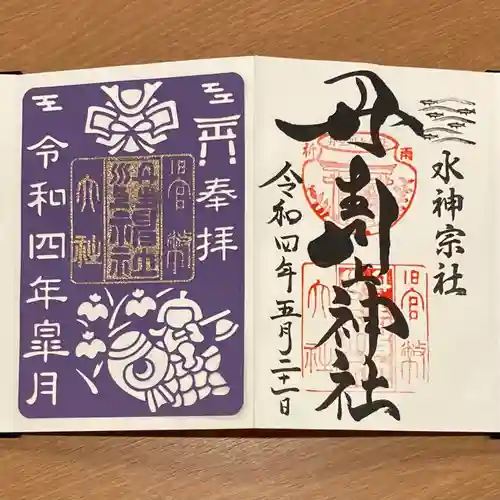 水神宗社
丹生川上神社
令和四年五月二十一日
雨
祈
旧官幣
大社
奉拝
旧官幣
大社
令和四年皐月